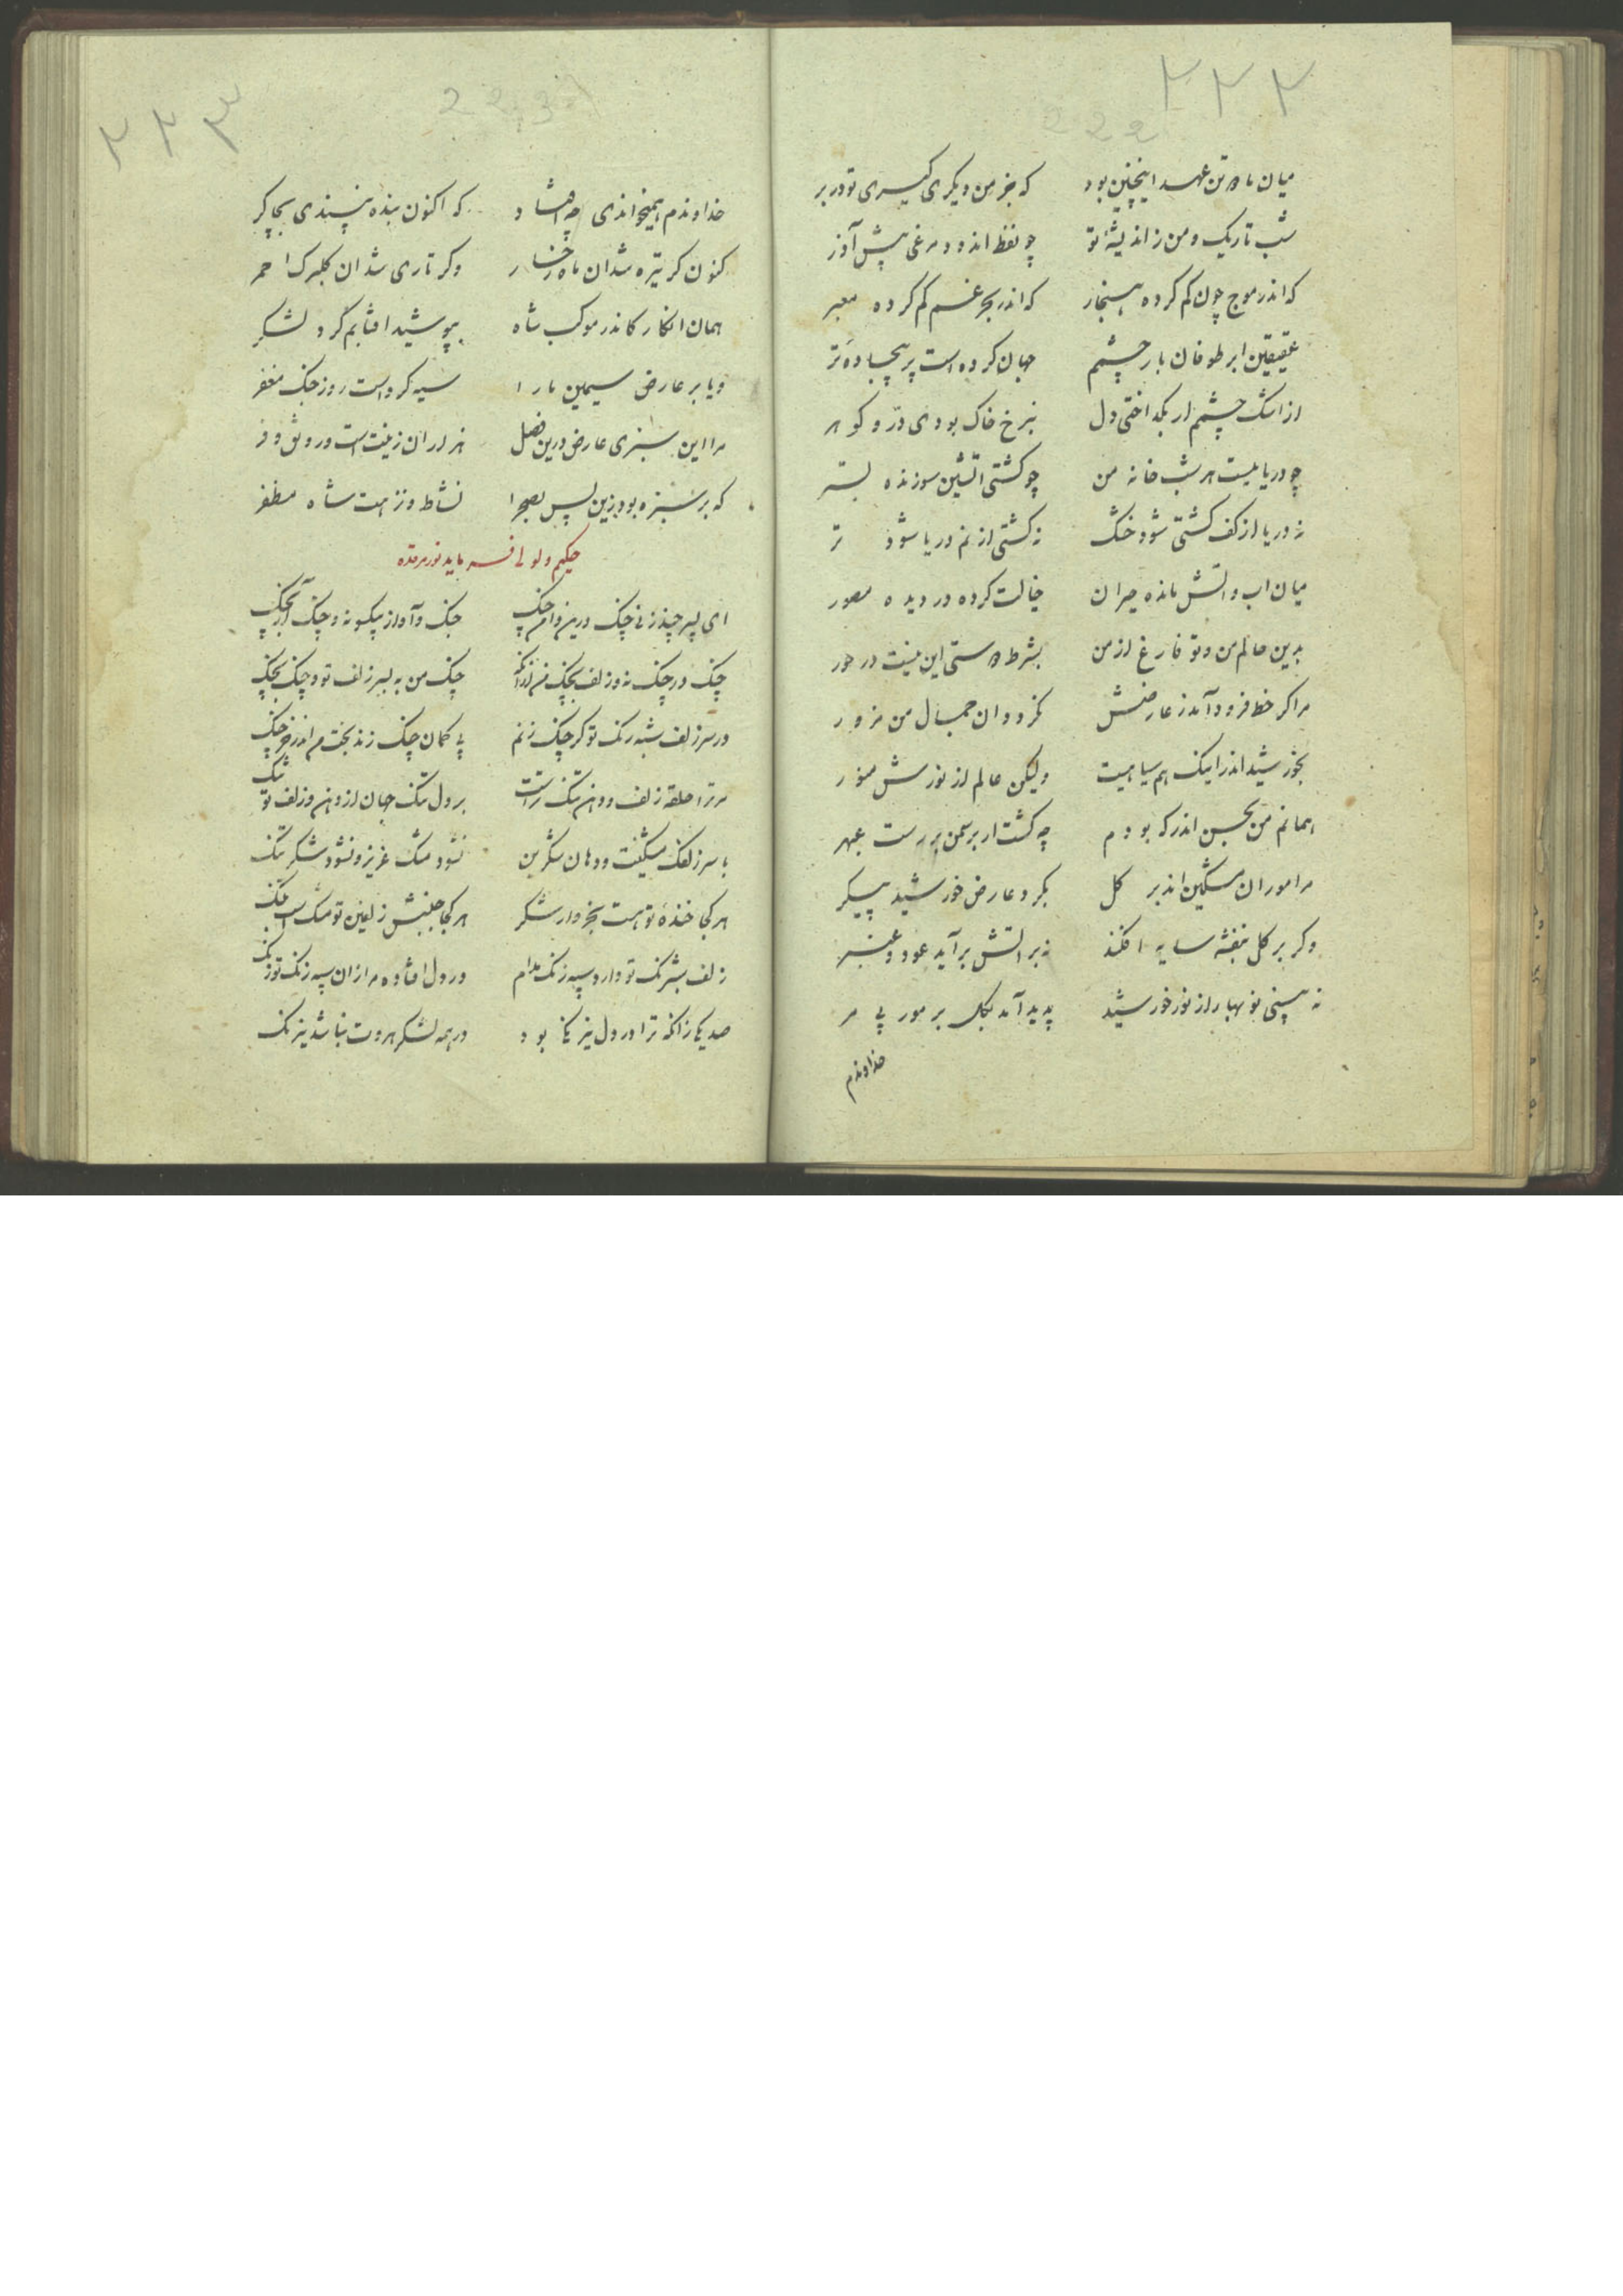 ۲۲۲
222
میان ما و تن عهد اینچنین بود که جز من دیکری کیری تو در بر
شب تاریک و من ز اندیشه تو چو نفط اندود مرغی پیش آذر
که اندر موج چون کم کرده هنجار که اندر بحر غم کم کرده معبر
عقیقین ابر طوفان بار چشمم جهان کرده است پر بیجاده تر
از اشک چشم ار بکداختی دل بنرخ خاک بودی در و کوهر
چو دریائیست هر شب خانه من چو کشتی اتشین سوزنده بستر
نه دریا از کف کشتی شود خشک نه کشتی از نم دریا شود تر
میان اب و اتش مانده حیران خیالت کرده در دیده مصور
بدین حالم من و تو فارغ از من بشرط دوستی این نیست در خور
مرا کر خط فرود آمد ز عارضش نکردد ان جمال من مزور
بخورشید اندر اینک هم سیاهیست ولیکن عالم از نورش منور
همانم من بحسن اندر که بودم چه کشت ار بر سمن بر رست عبهر
مرا موران مسکین اندر کل بکرد عارض خورشید پیکر
وکر بر کل بنفشه سایه افکند نه بر اتش برآید عود و عنبر
نه بینی نوبهار از نور خورشید پدید آمد بکل بر مور بی مر
خداوندم
۲۲۳
223
خداوندم همیخواندی چه افتاد که اکنون بنده نپسندی بچاکر
کنون کر تیره شد ان ماه رخسار وکر تاری شد ان کلبرک احمر
همان انکار کاندر موکب شاه بپوشید افتابم کرد لشکر
و یا بر عارض سیمین ما را سیه کرده است روز جنک مغفر
مرا این سبزی عارض درین فصل هزاران زینت است و رونق و فر
که بر سبزه بود زین پس بصحرا نشاط و نزهت شاه مظفر
حکیم ولوالجی فرماید نور مرقده
ای پسر چند زنی چنک درین دامن چنک جنک و آواز یکسو نه و چنک آر بچنک
چنک در چنک نه و زلف بچنک چنک من به بسر زلف تو و چنک بچنک
در سر زلف شبه رنک تو کر چنک زنم بی کمان چنک زند بختم اندر خرچنک
مر ترا حلقه زلف و دهن تنک تراست بر دل تنک جهان از دهن و زلف تو تنک
با سر زلفک مشکینت و دهان شکرین نشود مشک عزیز و نشود شکر تنک
هر کجا خنده تو هست بخروار شکر هر کجا جنبش زلفین تو مشک است
زلف شبرنک تو دارد سپه زنک مدام در دل افتاده مرا زان سپه زنک تو زنک
صد یکی زانکه ترا در دل نیرنک بود در همه لشکر هروت نباشد نیرنک